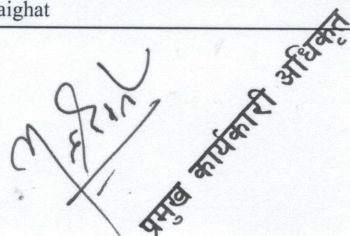 aighat
प्रमुख कार्यकारी अधिकृत